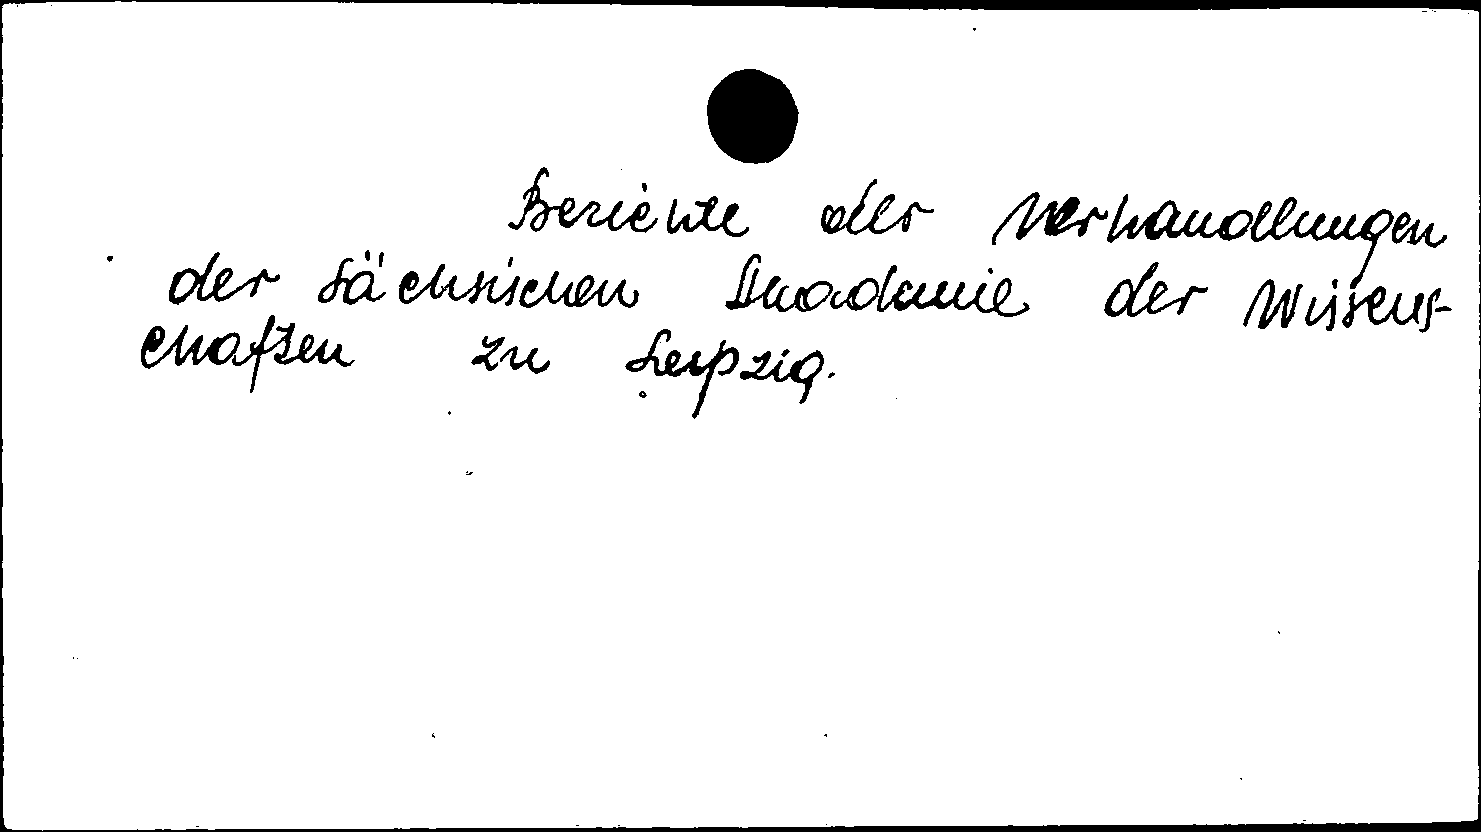 Berichte der Verhandlungen
der Sächsischen Akademie der Wissens-
chaften zu Leipzig.